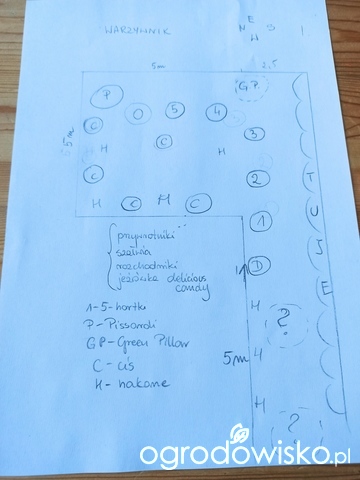 WARZYWNIK
E
N S
W
5m
2,5
P
GP
O
5
4
C
C
3
H
H
5m
C
2
H
C
M
C
1
D
TUJE
przywrotniki
szałwia
rozchodniki
jeżówka delicious
candy
1-5-hortki
P-Pissardi
GP-Green Pillar
C-cis
H-hakone
5m
H
?
H
H
?
ogrodowisko.pl